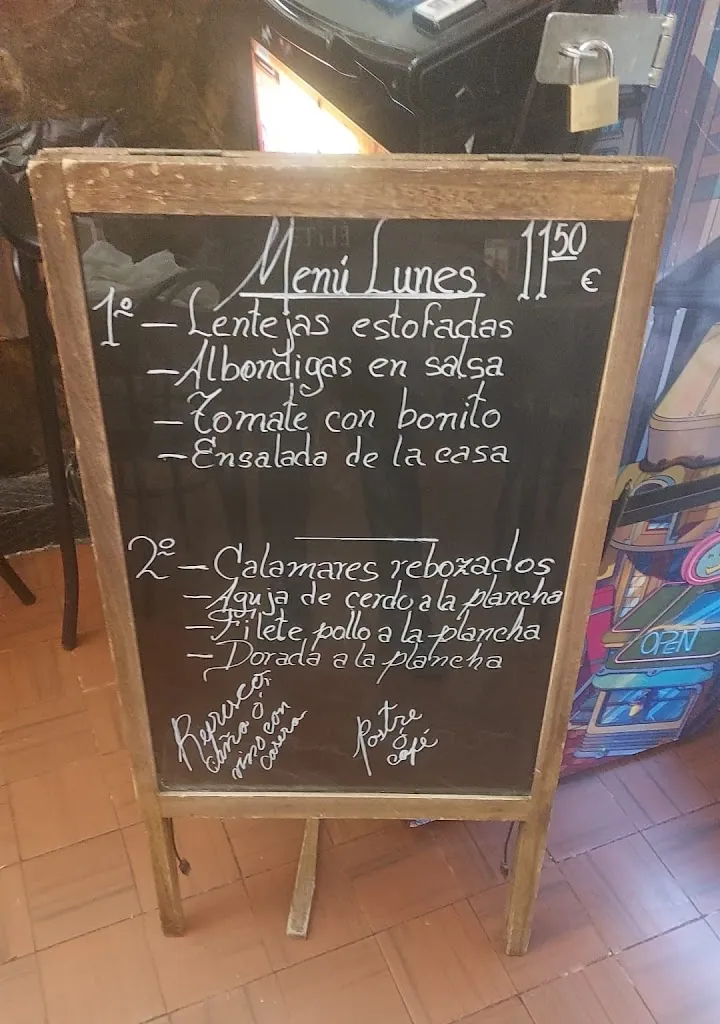 Menú Lunes 1150 €
1º - Lentejas estofadas
- Albondigas en salsa
- Tomate con bonito
- Ensalada de la casa
2º - Calamares rebozados
- Aguja de cerdo a la plancha
- Filete pollo a la plancha
- Dorada a la plancha
Refresco,
caña ó
vino con
casera
Postre
ó
café
OPEN